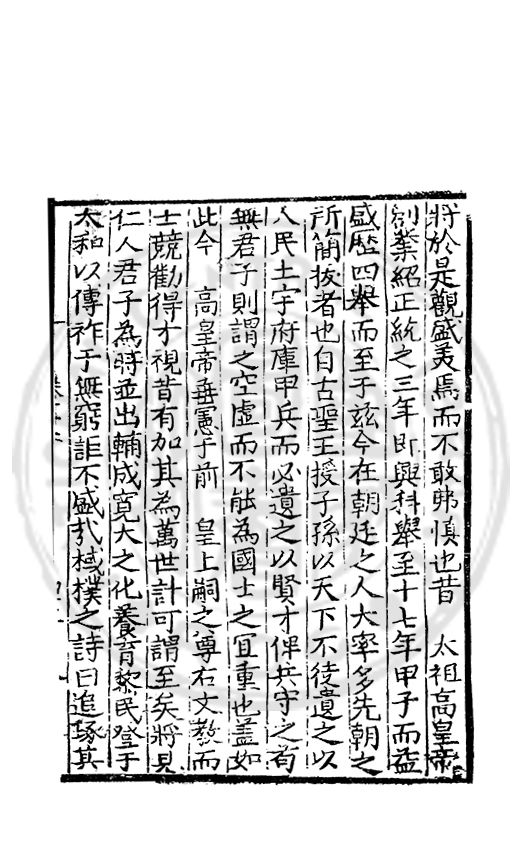 將於是觀盛美焉而不敢弗慎也昔　太祖高皇帝
創業紹正統之三年即興科舉至十七年甲子而益
盛歷四舉而至于茲今在朝廷之人大率多先朝之
所簡拔者也自古聖王授子孫以天下不徒遺之以
人民土宇府庫甲兵而必遺之以賢才俾共守之苟
無君子則謂之空虛而不能為國士之宜重也蓋如
此今　高皇帝垂憲于前　皇上嗣之尊右文教而
士競勸得才視昔有加其為萬世計可謂至矣將見
仁人君子為時並出輔成寬大之化養育黎民登于
太和以傳祚于無窮詎不盛哉棫樸之詩曰追琢其